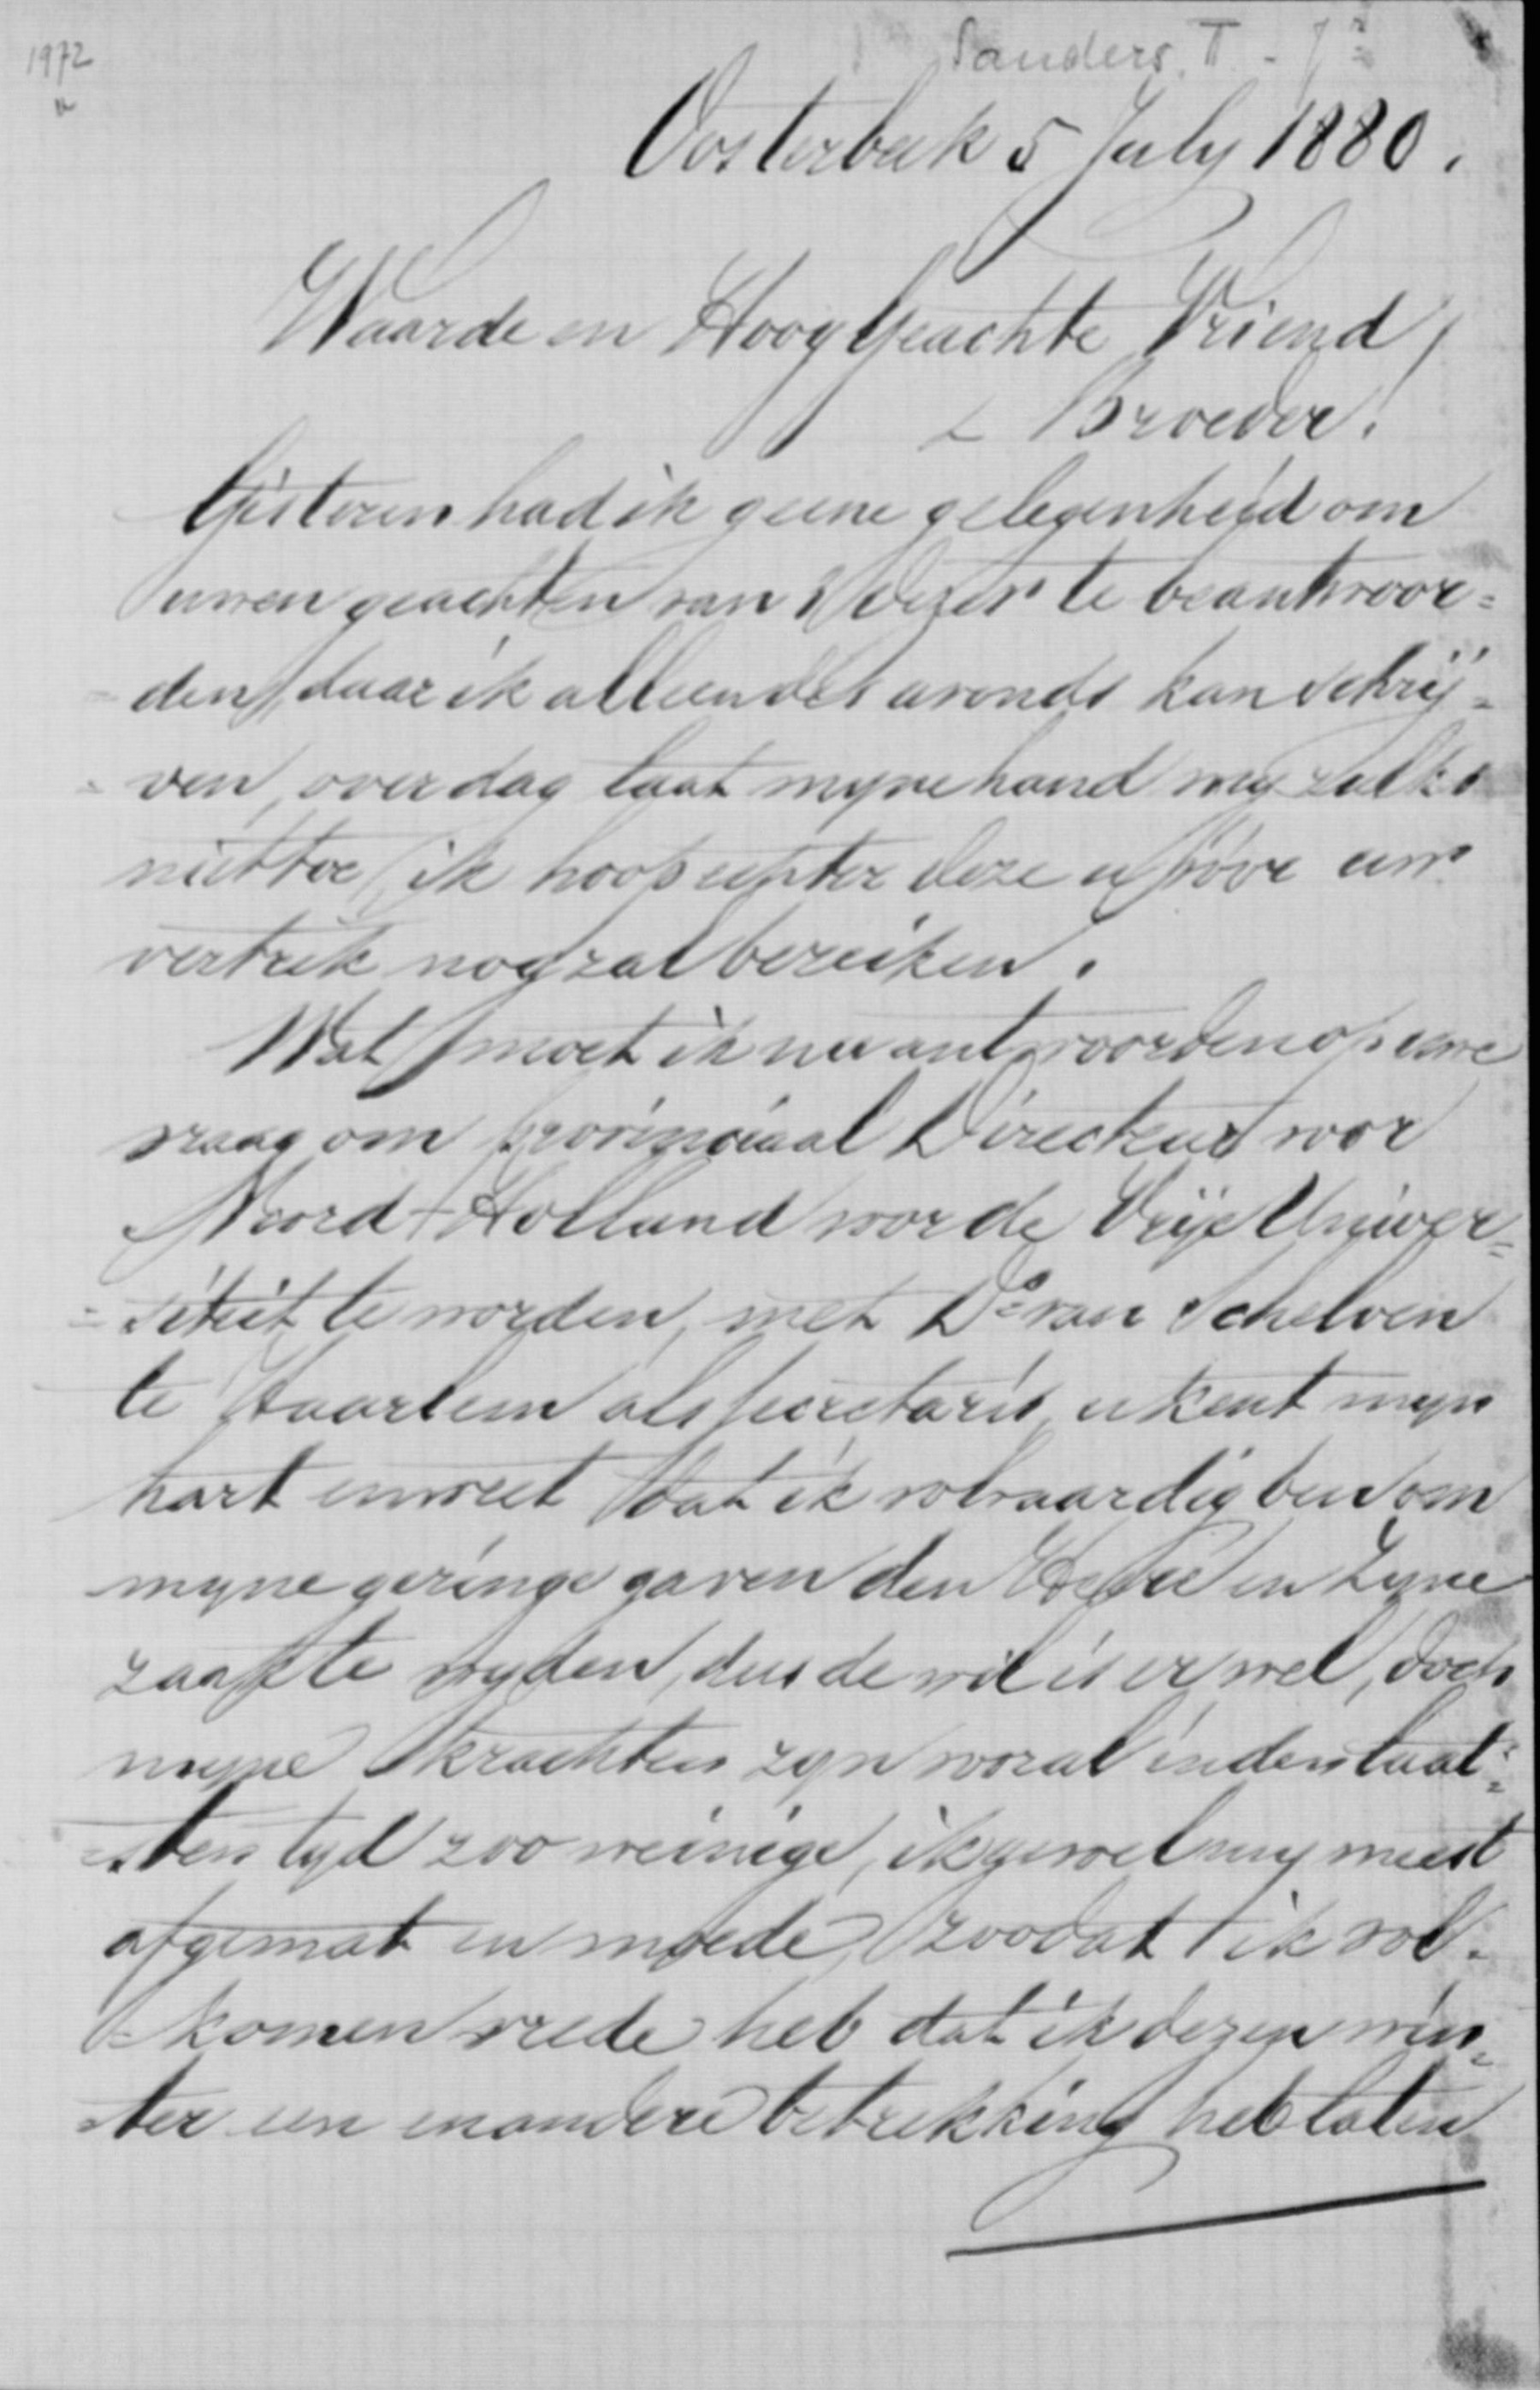 1972
Sanders. T. Jr
Oosterbeek 5 July 1880.
Waarde en HoogGeachte Vriend,
& Broeder!
Gisteren had ik geene gelegenheid om
uwen geachten van dezer te beantwoor=
den, daar ik alleen des avonds kan schrij=
ven, over dag laat myne hand my zulks
niet toe, ik hoop echter deze u vóór uw
vertrek nog zal bereiken.
Wat moet ik nu antwoorden op uwe
vraag om provinciaal Directeur voor
Noord-Holland voor de Vrije Univer=
=siteit te worden, met Ds van Schelven
te Haarlem als secretaris, u kent myn
hart en weet dat ik volvaardig ben om
myne geringe gaven den Heere en Zyne
zaak te wyden, dus de wil is er wel, doch
myne krachten zyn vooral in den laat=
=sten tyd zoo weinige, ik gevoel my meest
afgemat en moede, zoodat ik vol=
=komen vrede heb dat ik dezen win=
ter een en andere betrekking heb laten